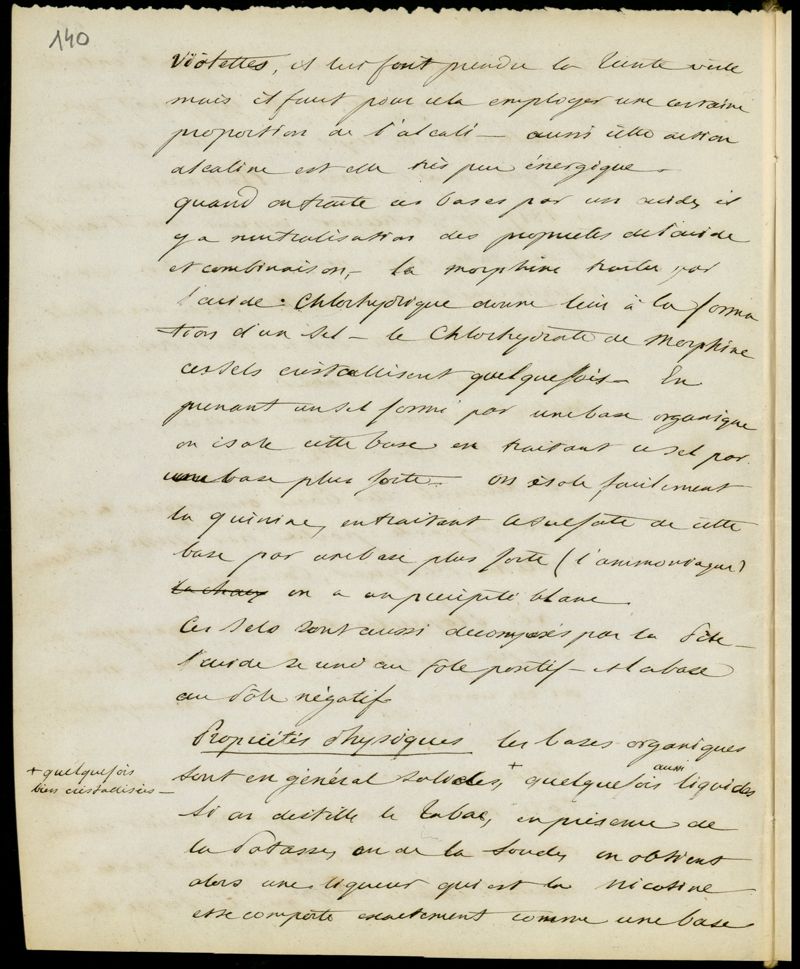 140
violettes, et leur font prendre la teinte verte
mais il faut pour cela employer une certaine
proportion de l'alcali — aussi cette action
alcaline est elle très peu énergique.
quand on traite ces bases par un acide, il
y a neutralisation des propriétés de l'acide
et combinaison, — la morphine traitée par
l'acide Chlorhydrique donne lieu à la forma
tion d'un sel — le Chlorhydrate de Morphine
ces sels cristallisent quelquefois — En
prenant un sel formé par une base organique
on isole cette base en traitant ce sel par
une base plus forte. on isole facilement
la quinine, en traitant le sulfate de cette
base par une base plus forte (l'ammoniaque)
la chaux on a un précipité blanc
Ces sels sont aussi décomposés par la Pile —
l'acide se rend au Pôle positif — et la base
au Pôle négatif
Propriétés Physiques les bases organiques
sont en général solides, + quelquefois aussi liquides
+ quelquefois
bien cristallisées —
Si on distille le Tabac, en présence de
la Potasse, ou de la Soude, on obtient
alors une liqueur qui est la nicotine
et se comporte exactement comme une base